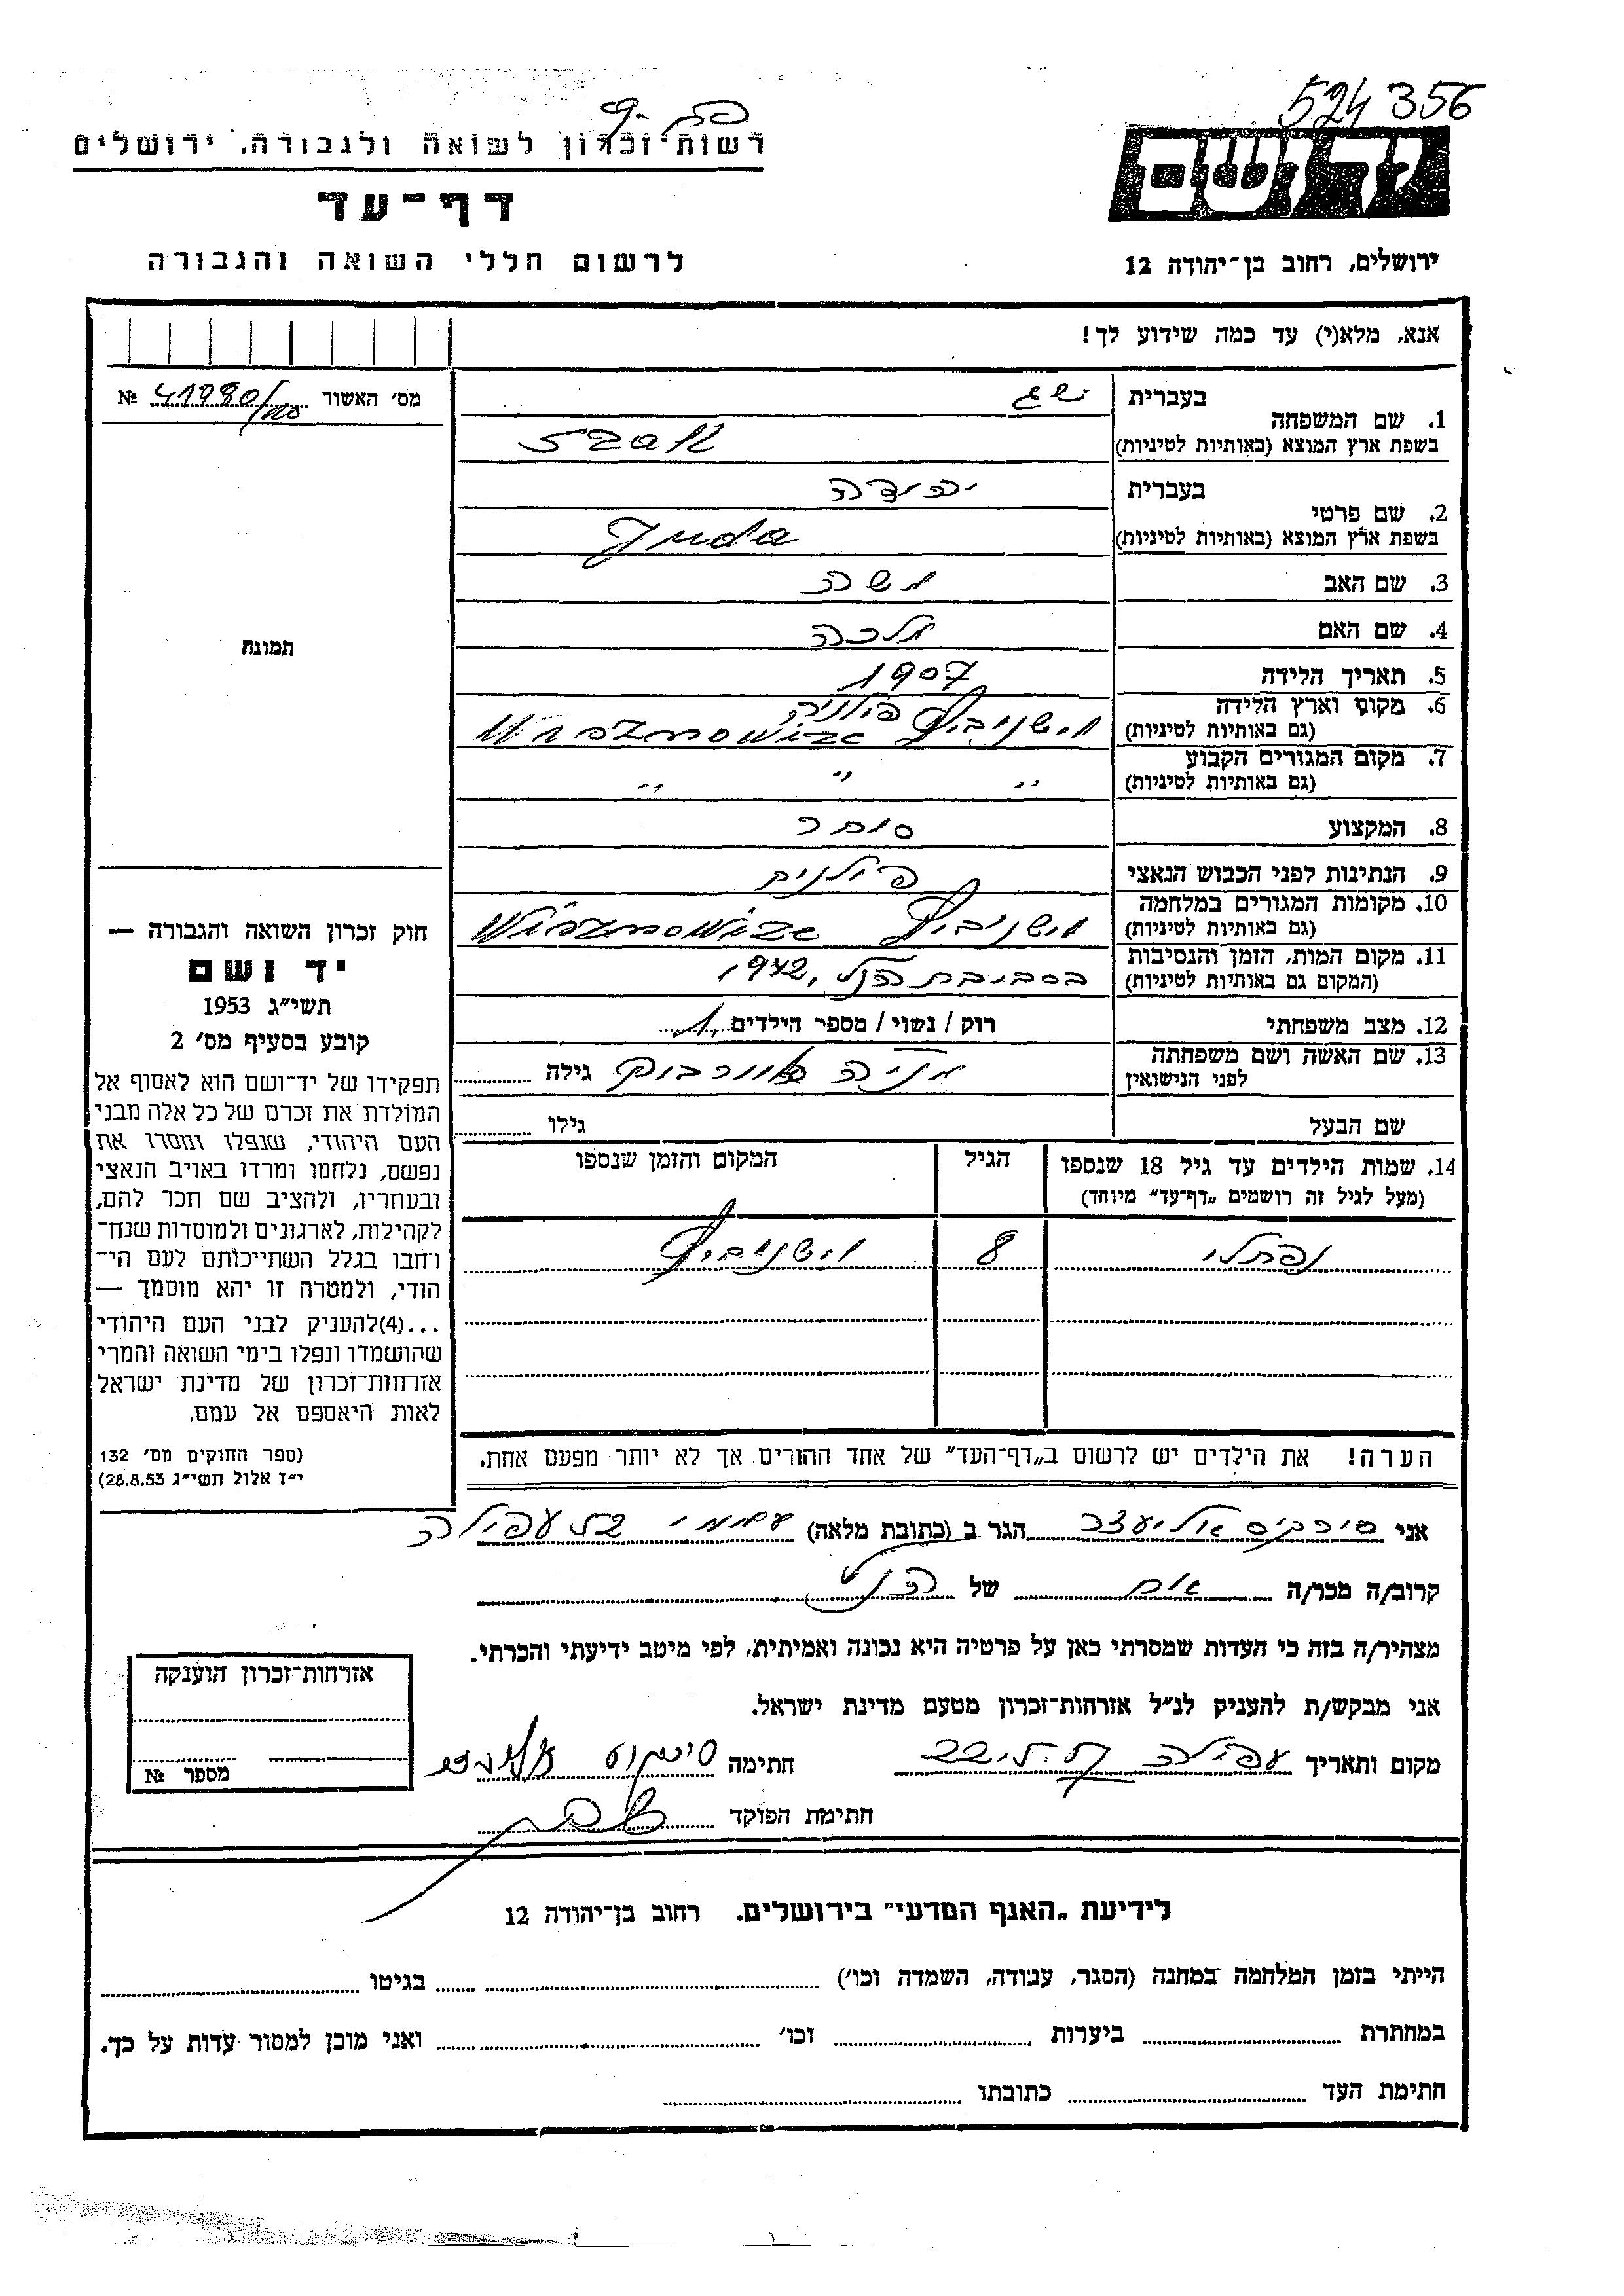 524356
רשות־זכרון לשואה ולגבורה, ירושלים
דף־עד
לרשום חללי השואה והגבורה
ידושם
ירושלים, רחוב בן־יהודה 12
אנא, מלא(י) עד כמה שידוע לך!
מס׳ האשור № 41980
1. שם המשפחה
בעברית
בשפת ארץ המוצא (באותיות לטיניות)
2. שם פרטי
בעברית יהודה
בשפת ארץ המוצא (באותיות לטיניות) Juda
3. שם האב משה
4. שם האם מלכה
5. תאריך הלידה 1907
6. מקום וארץ הלידה וישניביץ פולניה
(גם באותיות לטיניות)
7. מקום המגורים הקבוע
(גם באותיות לטיניות) " " "
8. המקצוע סוחר
9. הנתינות לפני הכבוש הנאצי פולנית
10. מקומות המגורים במלחמה וישניביץ
(גם באותיות לטיניות)
11. מקום המות, הזמן והנסיבות בסביבת הנ״ל, 1942
(המקום גם באותיות לטיניות)
12. מצב משפחתי רוק / נשוי / מספר הילדים 1
13. שם האשה ושם משפחתה
לפני הנישואין גילה
שם הבעל גילו
14. שמות הילדים עד גיל 18 שנספו הגיל המקום והזמן שנספו
(מעל לגיל זה רושמים „דף־עד״ מיוחד)
נפתלי 8 וישניביץ
הערה! את הילדים יש לרשום ב„דף־העד״ של אחד ההורים אך לא יותר מפעם אחת.
תמונה
חוק זכרון השואה והגבורה —
יד ושם
תשי״ג 1953
קובע בסעיף מס׳ 2
תפקידו של יד־ושם הוא לאסוף אל
המולדת את זכרם של כל אלה מבני
העם היהודי, שנפלו ומסרו את
נפשם, נלחמו ומרדו באויב הנאצי
ובעוזריו, ולהציב שם וזכר להם,
לקהילות, לארגונים ולמוסדות שנח־
רחבו בגלל השתייכותם לעם הי־
הודי, ולמטרה זו יהא מוסמך —
...(4)להעניק לבני העם היהודי
שהושמדו ונפלו בימי השואה והמרי
אזרחות־זכרון של מדינת ישראל
לאות היאספם אל עמם.
(ספר החוקים מס׳ 132
י״ז אלול תשי״ג 28.8.53)
אני הגר ב (כתובת מלאה) עפולה
קרוב/ה מכר/ה אח של הנ״ל
מצהיר/ה בזה כי העדות שמסרתי כאן על פרטיה היא נכונה ואמיתית, לפי מיטב ידיעתי והכרתי.
אני מבקש/ת להעניק לנ״ל אזרחות־זכרון מטעם מדינת ישראל.
מקום ותאריך עפולה חתימה
חתימת הפוקד
אזרחות־זכרון הוענקה
מספר №
לידיעת „האגף המדעי״ בירושלים. רחוב בן־יהודה 12
הייתי בזמן המלחמה במחנה (הסגר, עבודה, השמדה וכו׳) בגיטו
במחתרת ביערות וכו׳ ואני מוכן למסור עדות על כך.
חתימת העד כתובתו